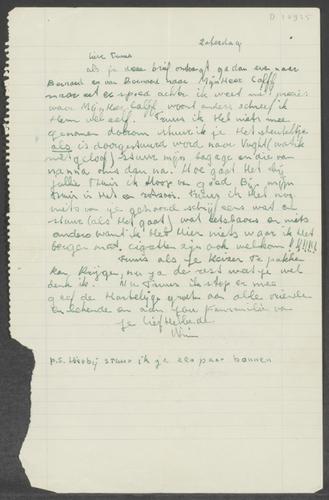 D 10925
Zaterdag
Lieve Truus
als je deze brief ontvangt ga dan even naar
Bernard en van Bernard naar Mijnheer Calff
naar er spoed achter ik weet niet precies
waar Mijnheer Calff woont anders schreef ik
Hem wel even. Truus ik Heb niets mee
genomen daarom stuur ik je Het sleuteltje
als is doorgestuurd word naar Vught (wat ik
niet geloof) stuur mijn bagage en die van
nanna ons dan na. Hoe gaat Het bij
jullie Thuis ik Hoop van goed Bij mijn
Thuis is Het een Truus ik Heb nog
niets van je gehoord schrijf eens wat en
stuur (als Het gaat) wat leesbaars en niets
anders want ik Heb Hier niets waar ik Het
bergen moet, cigaretten zijn ook welkom!!!!!!!
Truus als je Keizer Te pakken
kan Krijgen, nu ja de rest weet je wel
denk ik. Nu Truus ik stop er mee
geef de Hartelijke groeten aan alle vrienden
en bekende en aan jou
je liefhebbende
Wim
p.s. Hierbij stuur ik je een paar bonnen